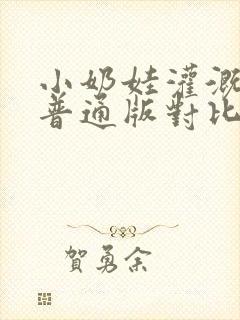 小奶娃灌溉
普通版對比
賀勇余